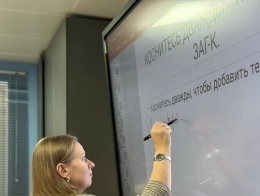 КОСНИТЕСЬ ДВАЖДЫ
ЗАГ-К.
• Коснитесь дважды, чтобы добавить те